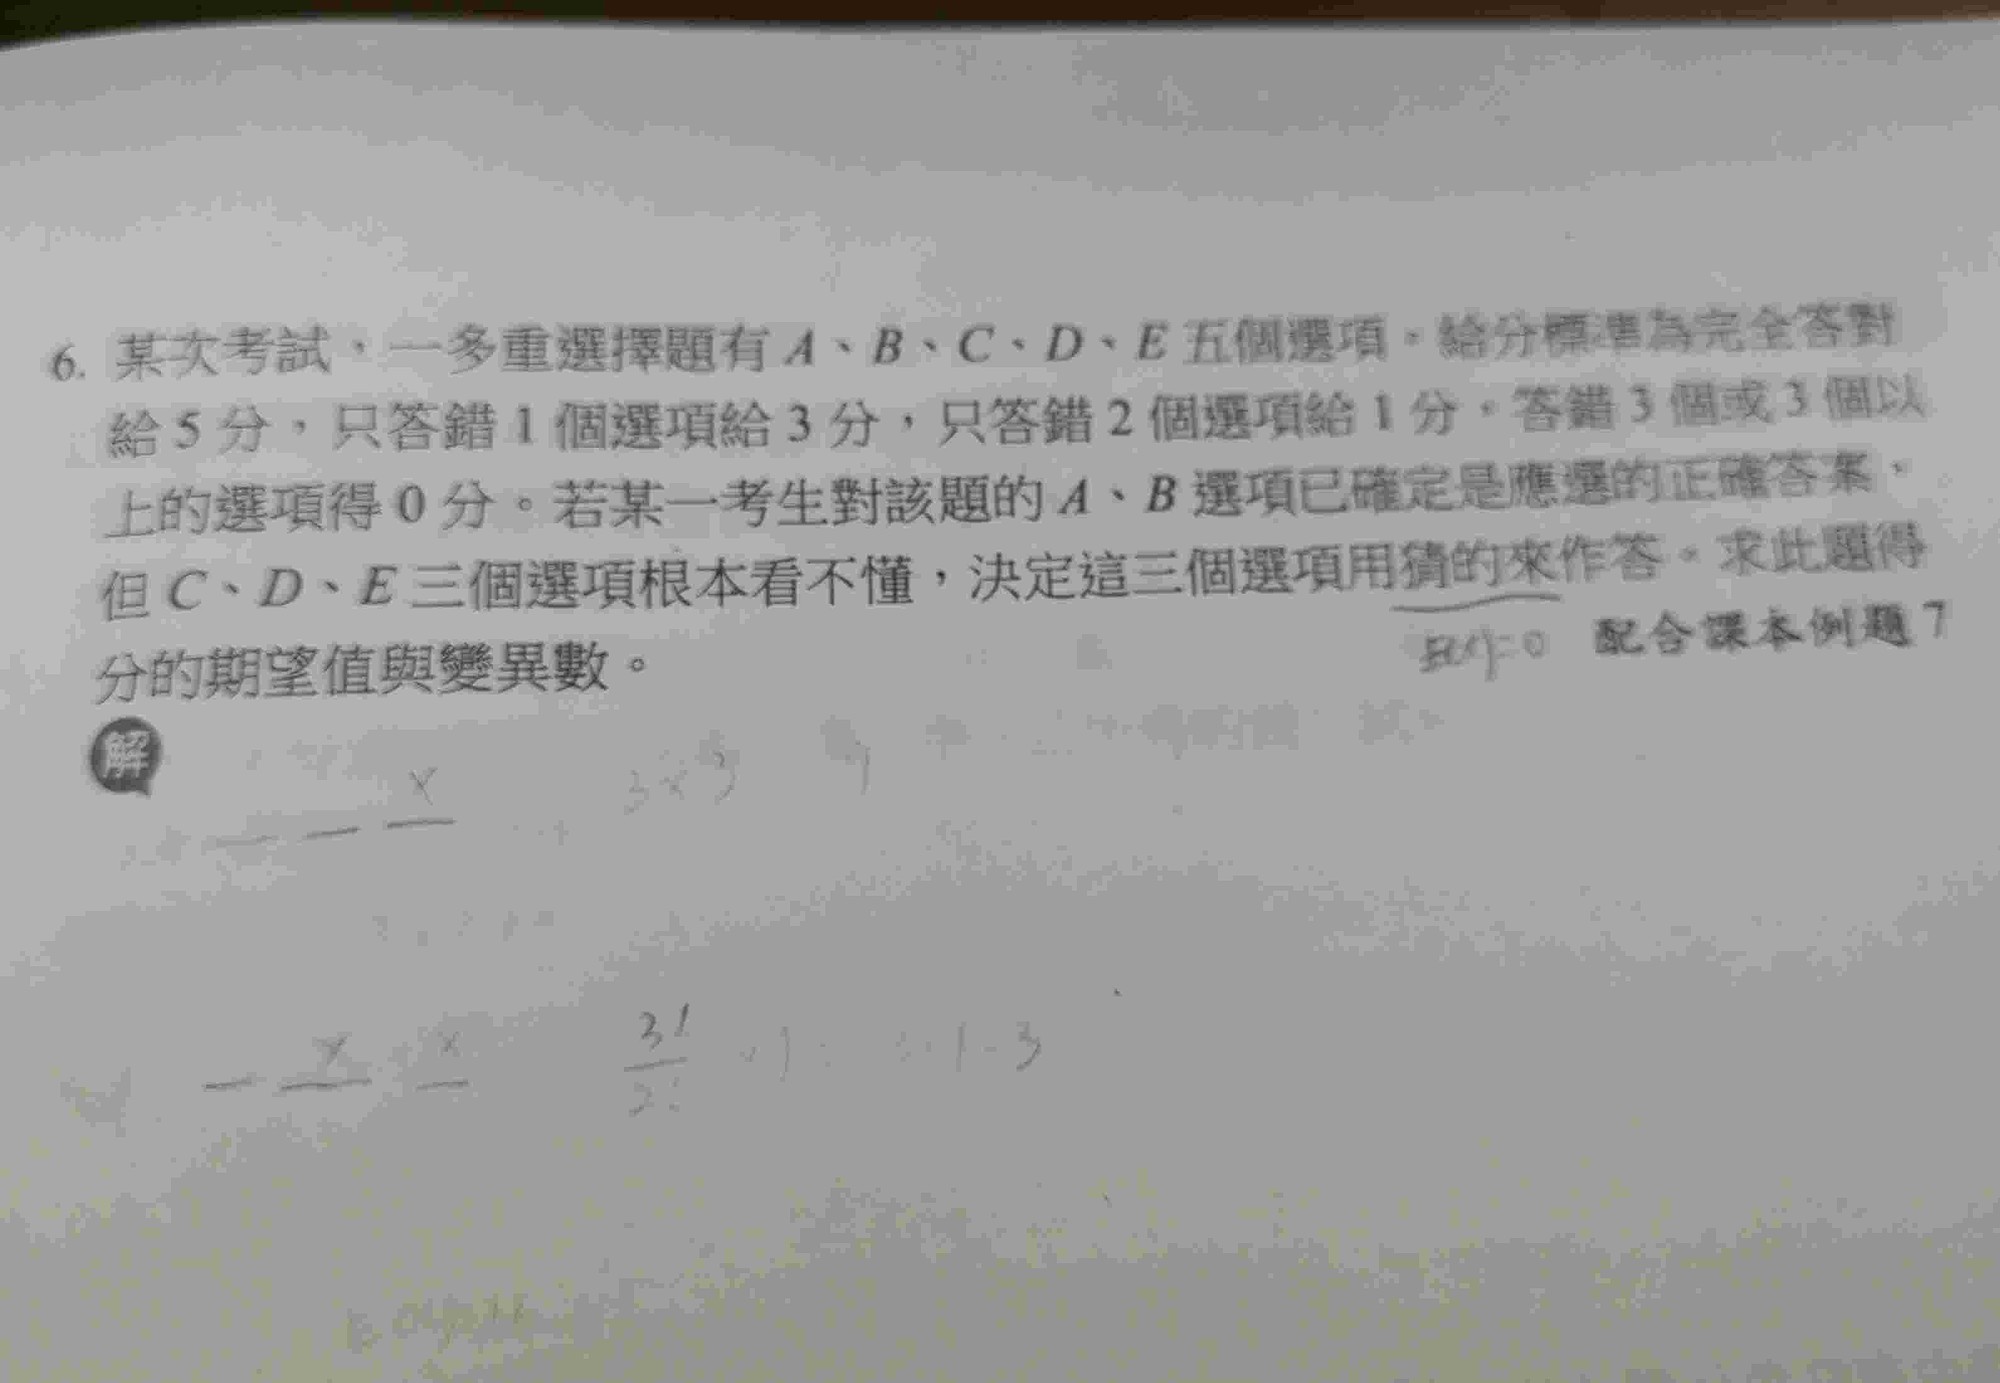 6. 某次考試,一多重選擇題有 A、B、C、D、E 五個選項,給分標準為完全答對
給 5 分,只答錯 1 個選項給 3 分,只答錯 2 個選項給 1 分,答錯 3 個或 3 個以
上的選項得 0 分。若某一考生對該題的 A、B 選項已確定是應選的正確答案,
但 C、D、E 三個選項根本看不懂,決定這三個選項用猜的來作答。求此題得
分的期望值與變異數。
配合課本例題 7
解
x
3×3
x x
3!
2!
1-3